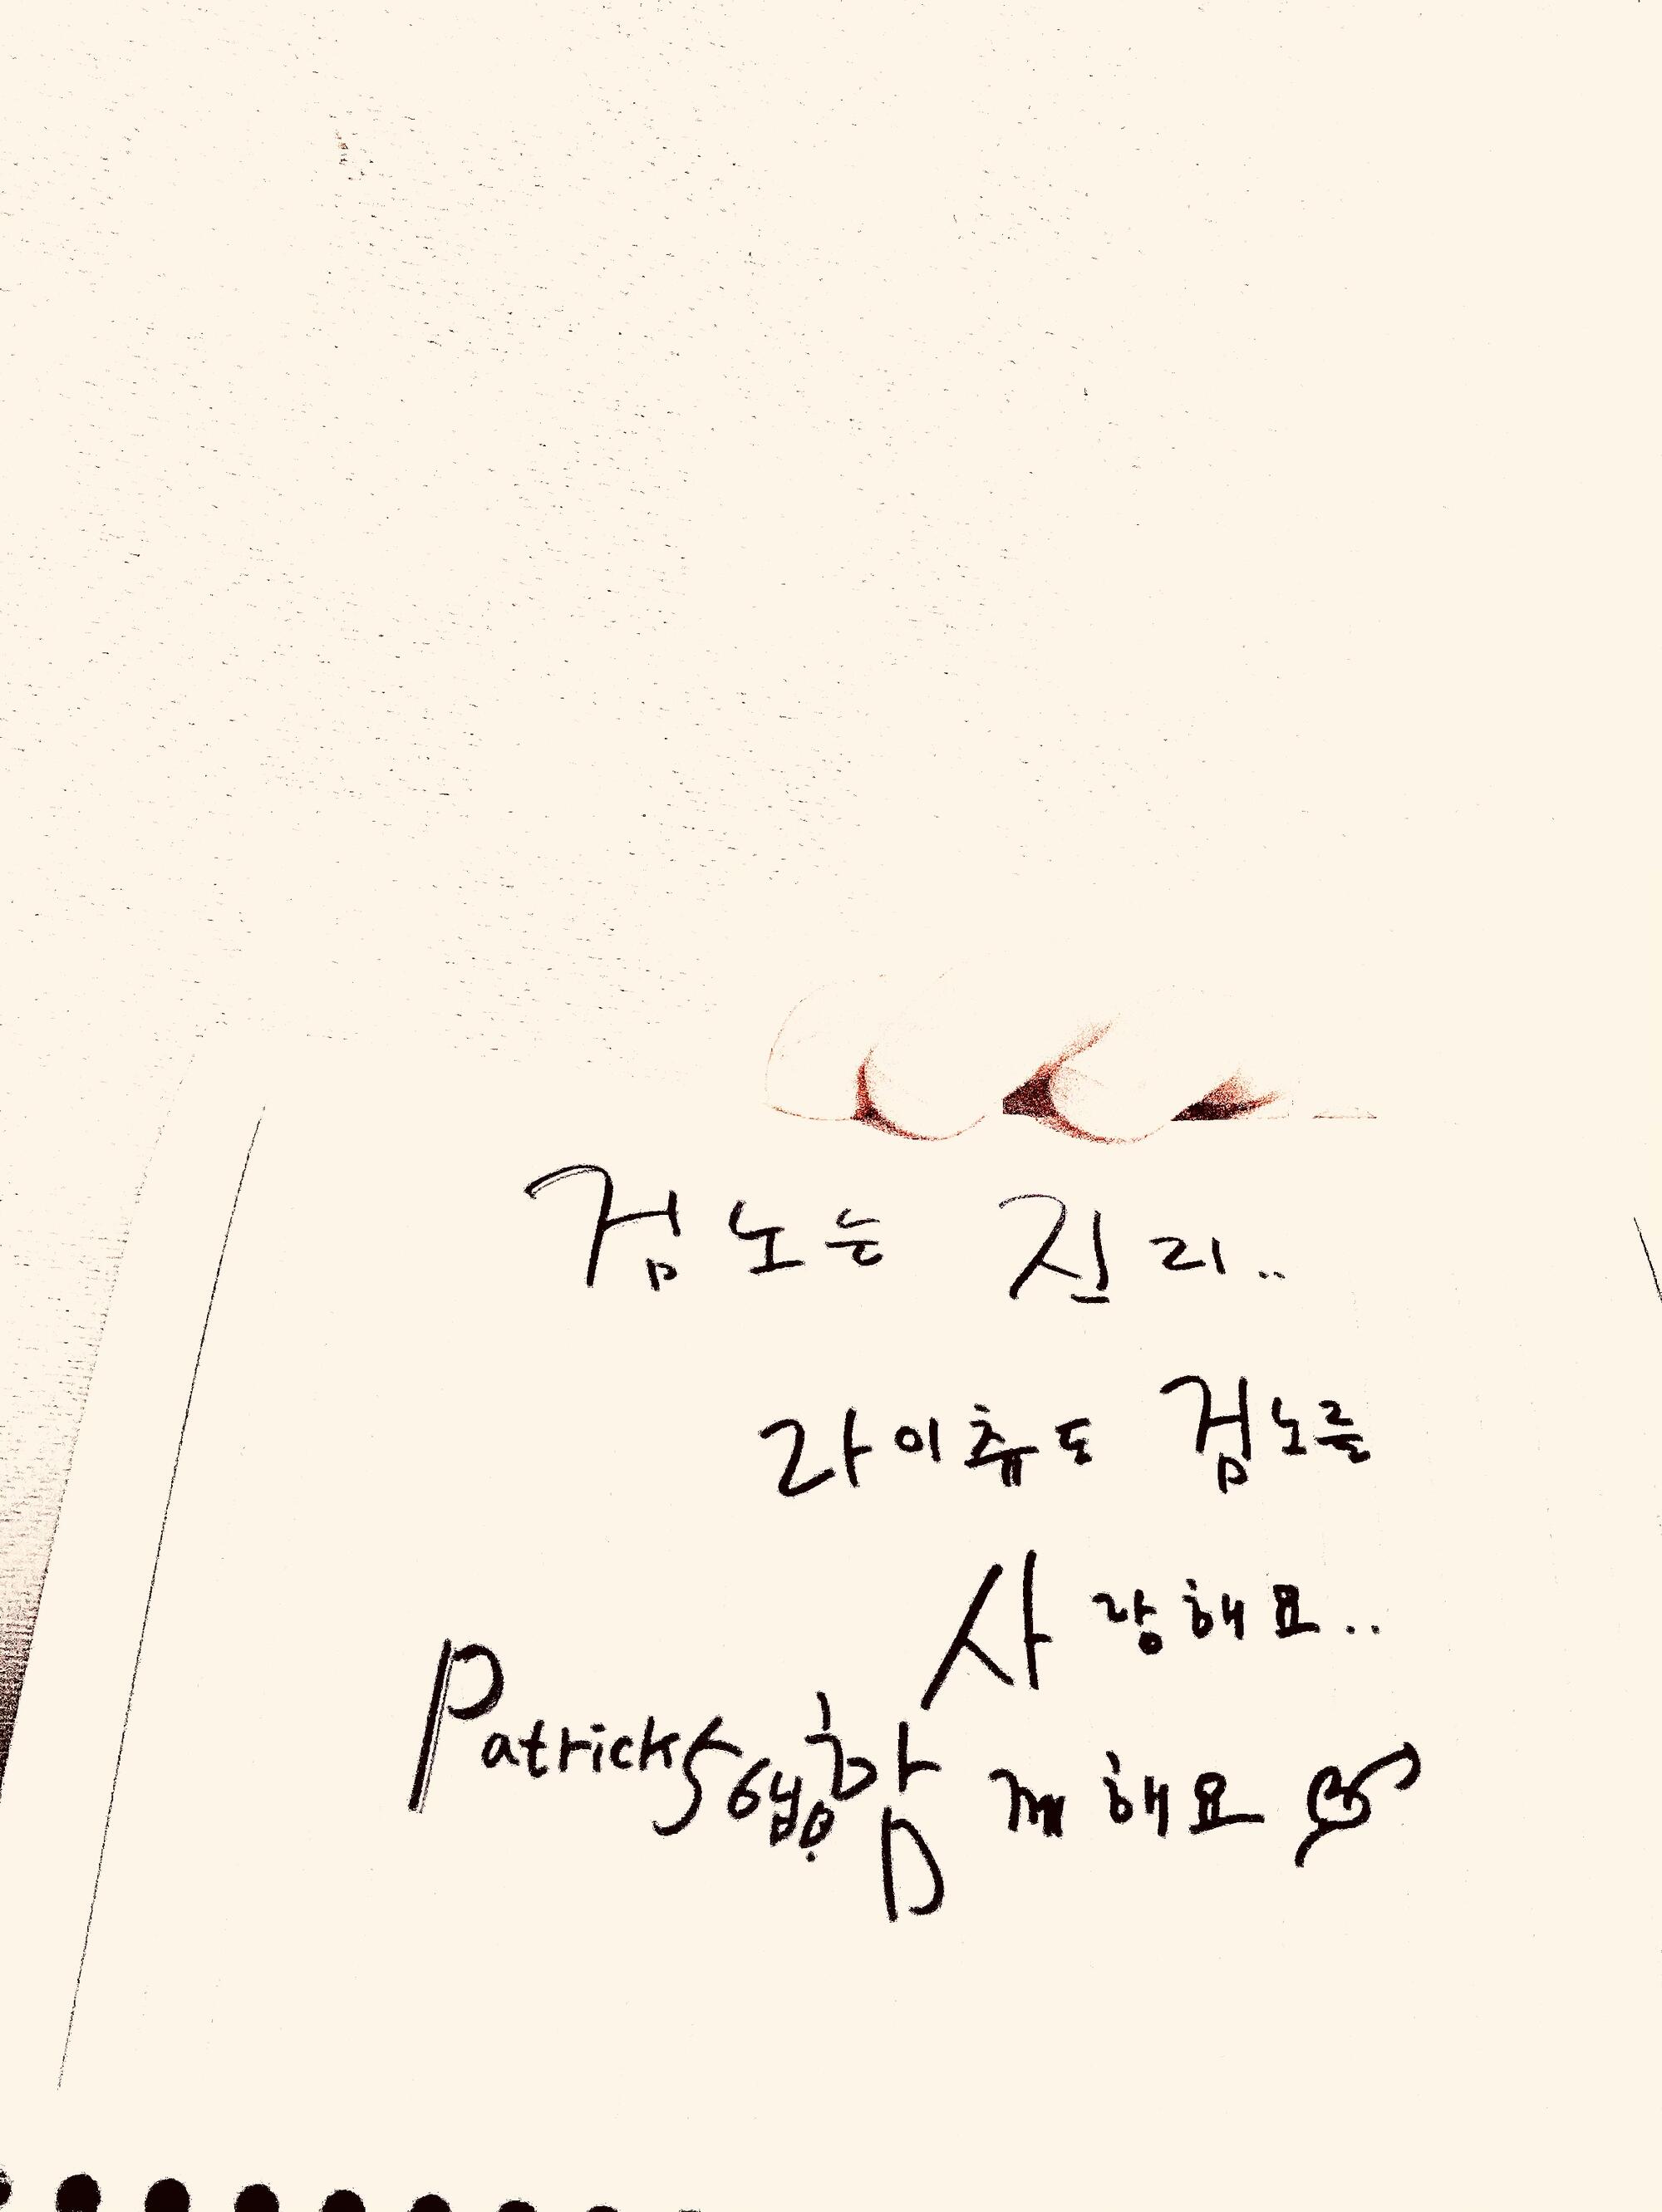 검노는 진리..
라이츄도 검노를
사랑해요..
Patrick 함께해요